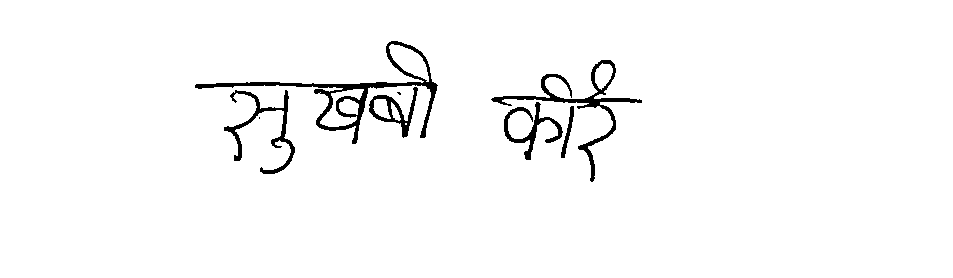 सुखबी कौर